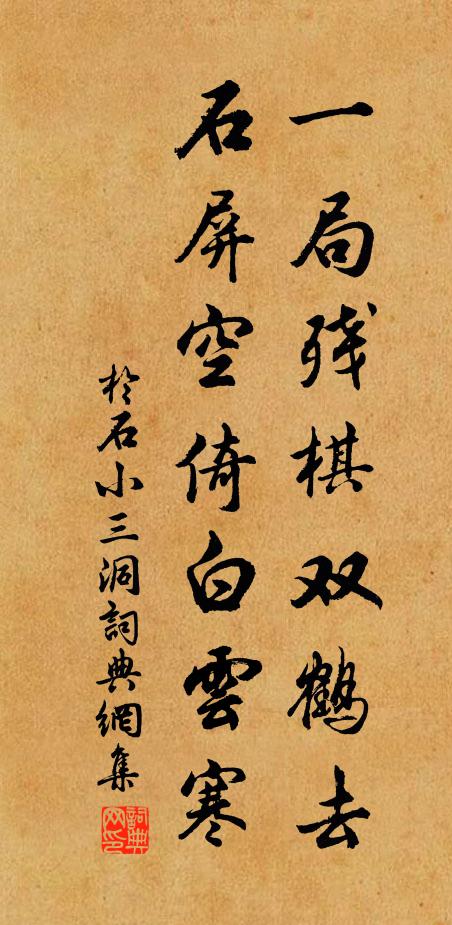 一局残棋双鹤去
石屏空倚白雲寒
於石小三洞詞典網集
詞典网印